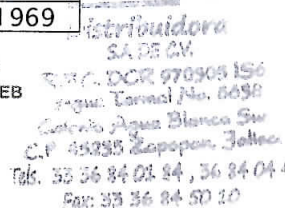 1969
Distribuidora
S.A. DE C.V.
EB
R.F.C. DCR 970909 1S6
Termal No. 6698
Colonia Agua Blanca Sur
C.P. 45235 Zapopan, Jalisco
Tels. 33 36 84 01 84, 36 84 04
Fax: 33 36 84 50 10